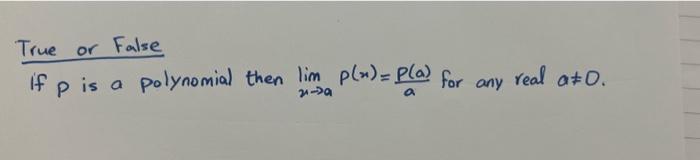 True or False
If p is a polynomial then lim x→a p(x) = p(a)/a for any real a≠0.